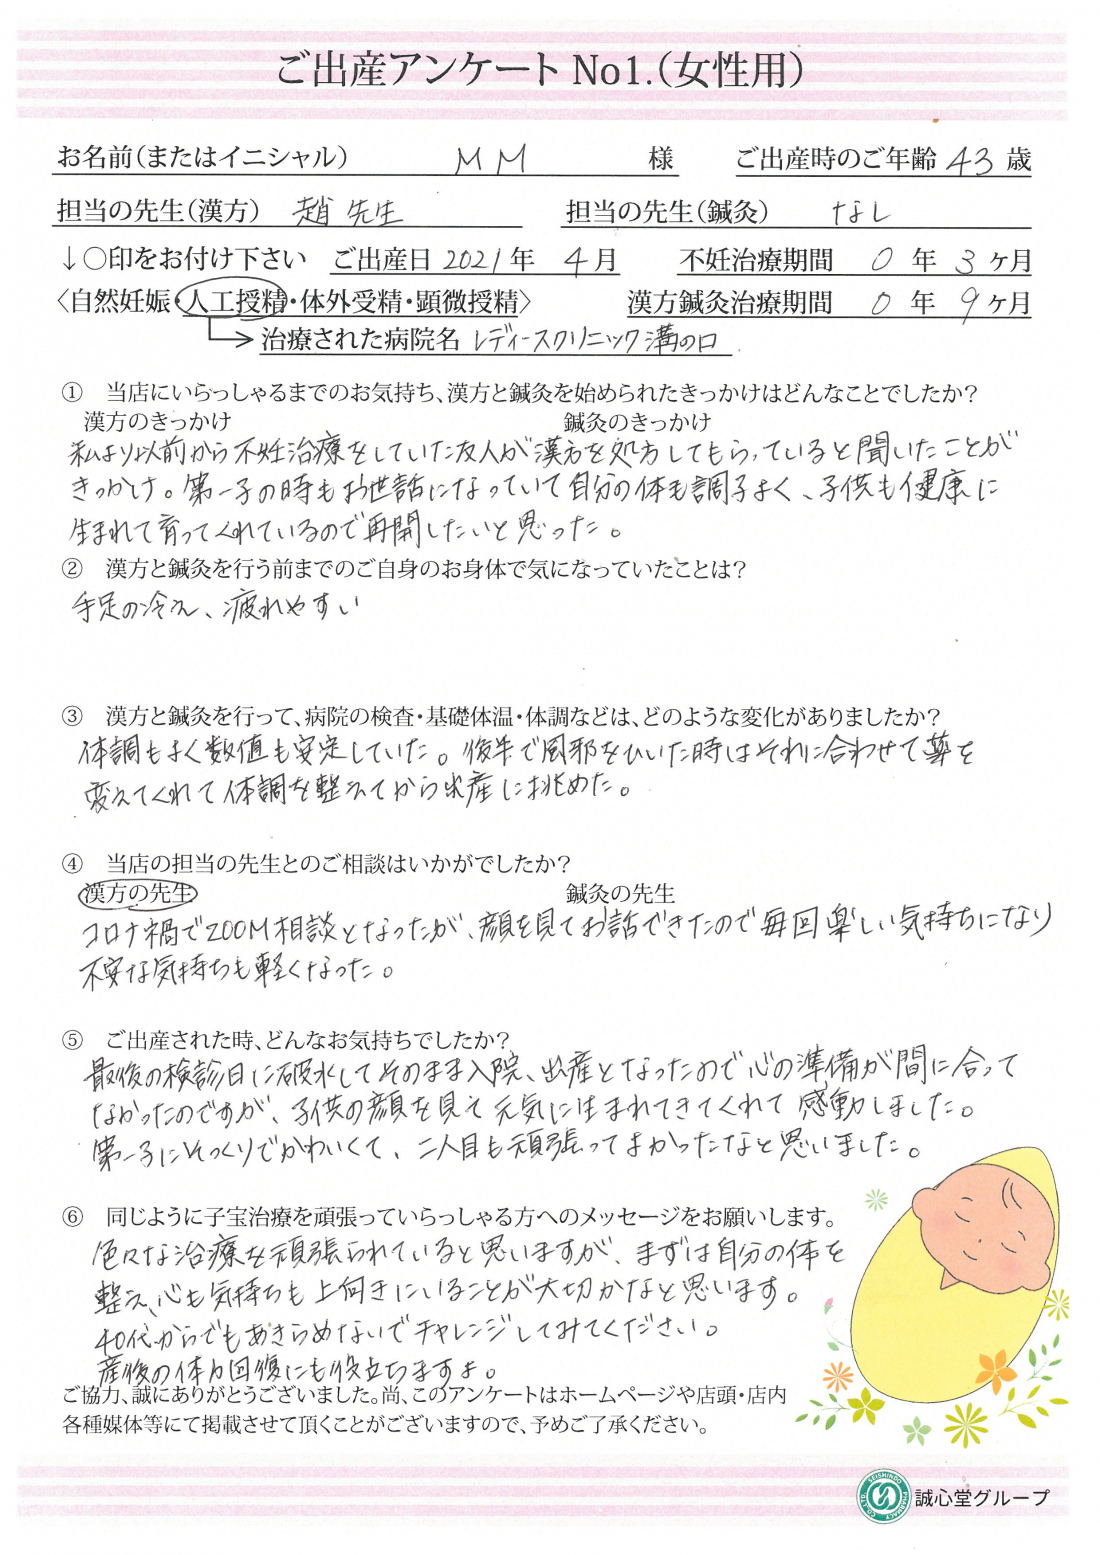 ご出産アンケート No1.(女性用)
お名前(またはイニシャル) MM 様 ご出産時のご年齢 43 歳
担当の先生(漢方) 趙 先生 担当の先生(鍼灸) なし
↓○印をお付け下さい ご出産日 2021 年 4 月 不妊治療期間 0 年 3 ヶ月
〈自然妊娠・人工授精・体外受精・顕微授精〉 漢方鍼灸治療期間 0 年 9 ヶ月
治療された病院名 レディースクリニック溝の口
① 当店にいらっしゃるまでのお気持ち、漢方と鍼灸を始められたきっかけはどんなことでしたか?
漢方のきっかけ 鍼灸のきっかけ
私より以前から不妊治療をしていた友人が漢方を処方してもらっていると聞いたことが
きっかけ。第一子の時もお世話になっていて自分の体も調子よく、子供も健康に
生まれて育ってくれているので再開したいと思った。
② 漢方と鍼灸を行う前までのご自身のお身体で気になっていたことは?
手足の冷え、疲れやすい
③ 漢方と鍼灸を行って、病院の検査・基礎体温・体調などは、どのような変化がありましたか?
体調もよく数値も安定していた。後半で風邪をひいた時はそれに合わせて薬を
変えてくれて体調を整えてから出産に挑めた。
④ 当店の担当の先生とのご相談はいかがでしたか?
漢方の先生 鍼灸の先生
コロナ禍でZOOM相談となったが、顔を見てお話できたので毎回楽しい気持ちになり
不安な気持ちも軽くなった。
⑤ ご出産された時、どんなお気持ちでしたか?
最後の検診日に破水してそのまま入院、出産となったので心の準備が間に合って
なかったのですが、子供の顔を見て元気に生まれてきてくれて感動しました。
第一子にそっくりでかわいくて、二人目も頑張ってよかったなと思いました。
⑥ 同じように子宝治療を頑張っていらっしゃる方へのメッセージをお願いします。
色々な治療を頑張られていると思いますが、まずは自分の体を
整え、心も気持ちも上向きにいることが大切かなと思います。
40代からでもあきらめないでチャレンジしてみてください。
産後の体力回復にも役立ちますよ。
ご協力、誠にありがとうございました。尚、このアンケートはホームページや店頭・店内
各種媒体等にて掲載させて頂くことがございますので、予めご了承ください。
SEISHINDO PHARMACY CO.,LTD. 誠心堂グループ